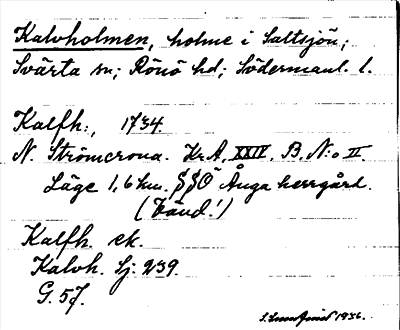 Kalvholmen, holme i Saltsjön;
Svärta sn; Rönö hd; Södermanl. l.
Kalfh:, 1734.
N. Strömcrona. Kr.A. XXIV. B. N:o II.
Läge 1,6 km. SSÖ Ånga herrgård.
(Känd!)
Kalfh. ek.
Kalvh. Sj. 239.
G. 57.
1936.